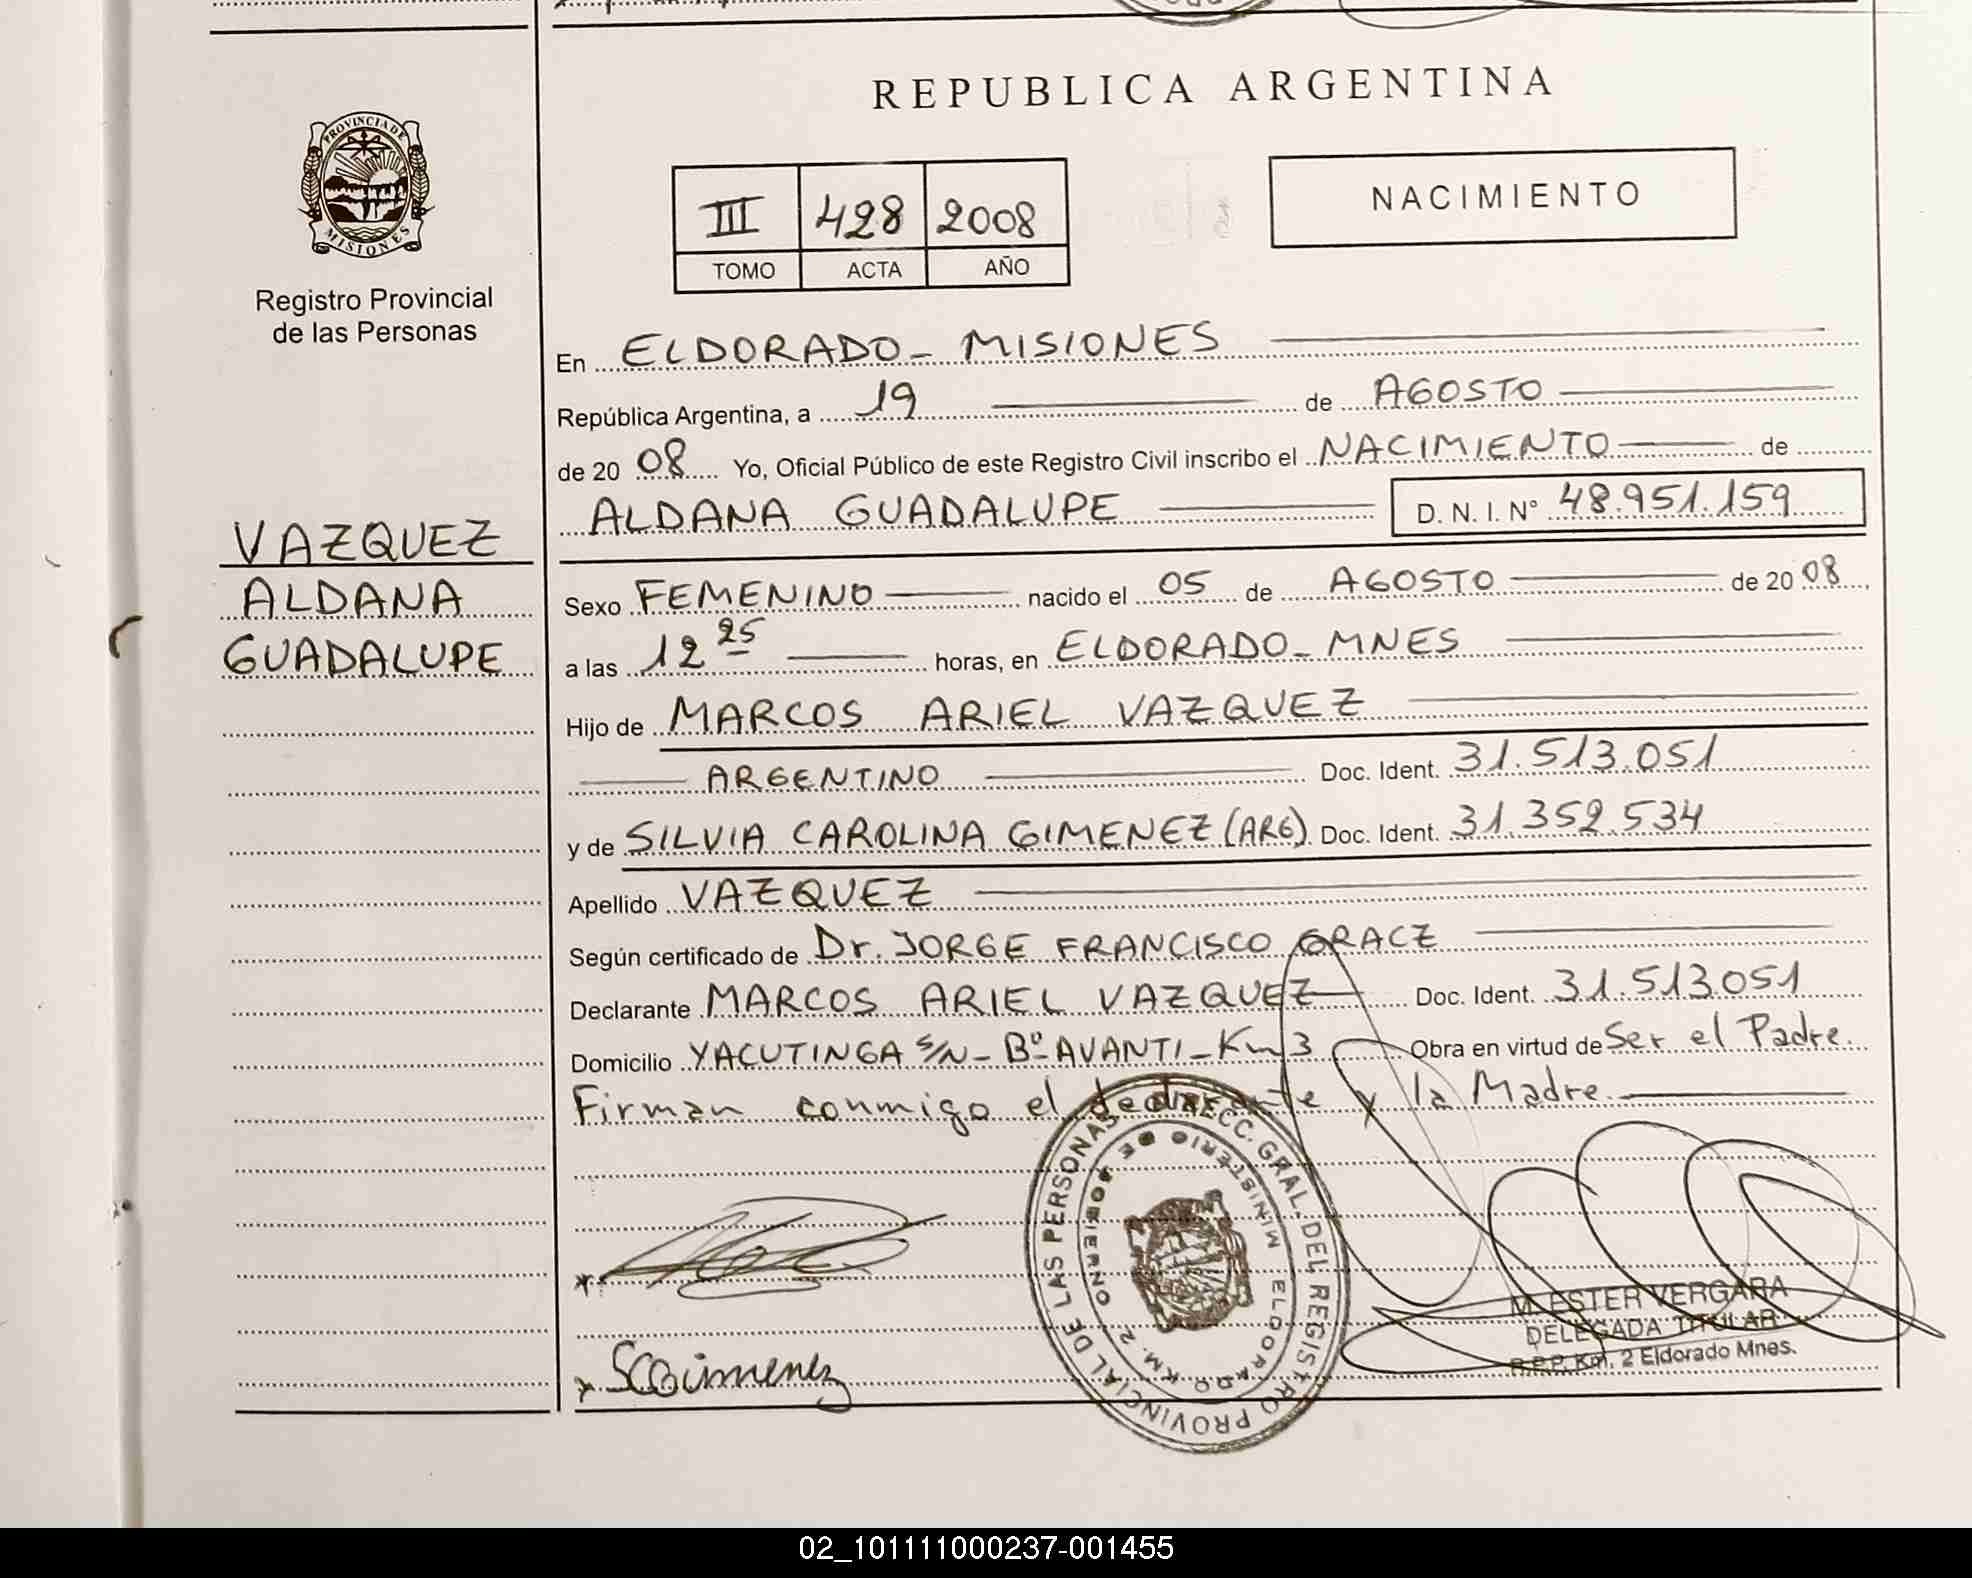 REPUBLICA ARGENTINA
PROVINCIA DE MISIONES
Registro Provincial
de las Personas
III 428 2008
TOMO ACTA AÑO
NACIMIENTO
En ELDORADO - MISIONES
República Argentina, a 19 de AGOSTO
de 20 08 Yo, Oficial Público de este Registro Civil inscribo el NACIMIENTO de
ALDANA GUADALUPE D. N. I. N° 48.951.159
VAZQUEZ
ALDANA
GUADALUPE
Sexo FEMENINO nacido el 05 de AGOSTO de 20 08
a las 12 25 horas, en ELDORADO - MNES
Hijo de MARCOS ARIEL VAZQUEZ
ARGENTINO Doc. Ident. 31.513.051
y de SILVIA CAROLINA GIMENEZ (ARG) Doc. Ident. 31.352.534
Apellido VAZQUEZ
Según certificado de Dr. JORGE FRANCISCO GRACZ
Declarante MARCOS ARIEL VAZQUEZ Doc. Ident. 31.513.051
Domicilio YACUTINGA S/N - Bº AVANTI - Km 3 Obra en virtud de Ser el Padre.
Firman conmigo el declarante y la Madre.
DIRECC. GRAL. DEL REGISTRO PROVINCIAL DE LAS PERSONAS
MINISTERIO DE GOBIERNO
ELDORADO KM. 2
M. ESTER VERGARA
DELEGADA TITULAR
R.P.P. Km. 2 Eldorado Mnes.
SCGimenez
02_101111000237-001455